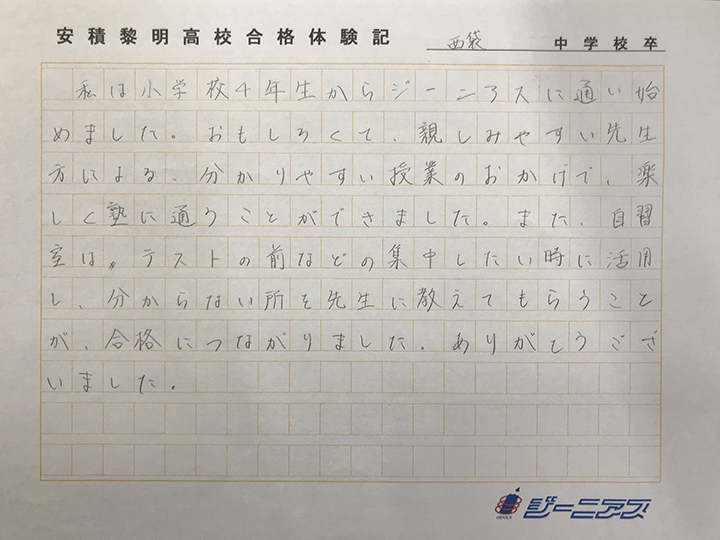 安積黎明高校合格体験記
西袋 中学校卒
私は小学校4年生からジーニアスに通い始
めました。おもしろくて、親しみやすい先生
方による、分かりやすい授業のおかげで、楽
しく塾に通うことができました。また、自習
室は、テストの前などの集中したい時に活用
し、分からない所を先生に教えてもらうこと
が、合格につながりました。ありがとうござ
いました。
GENIUS ジーニアス